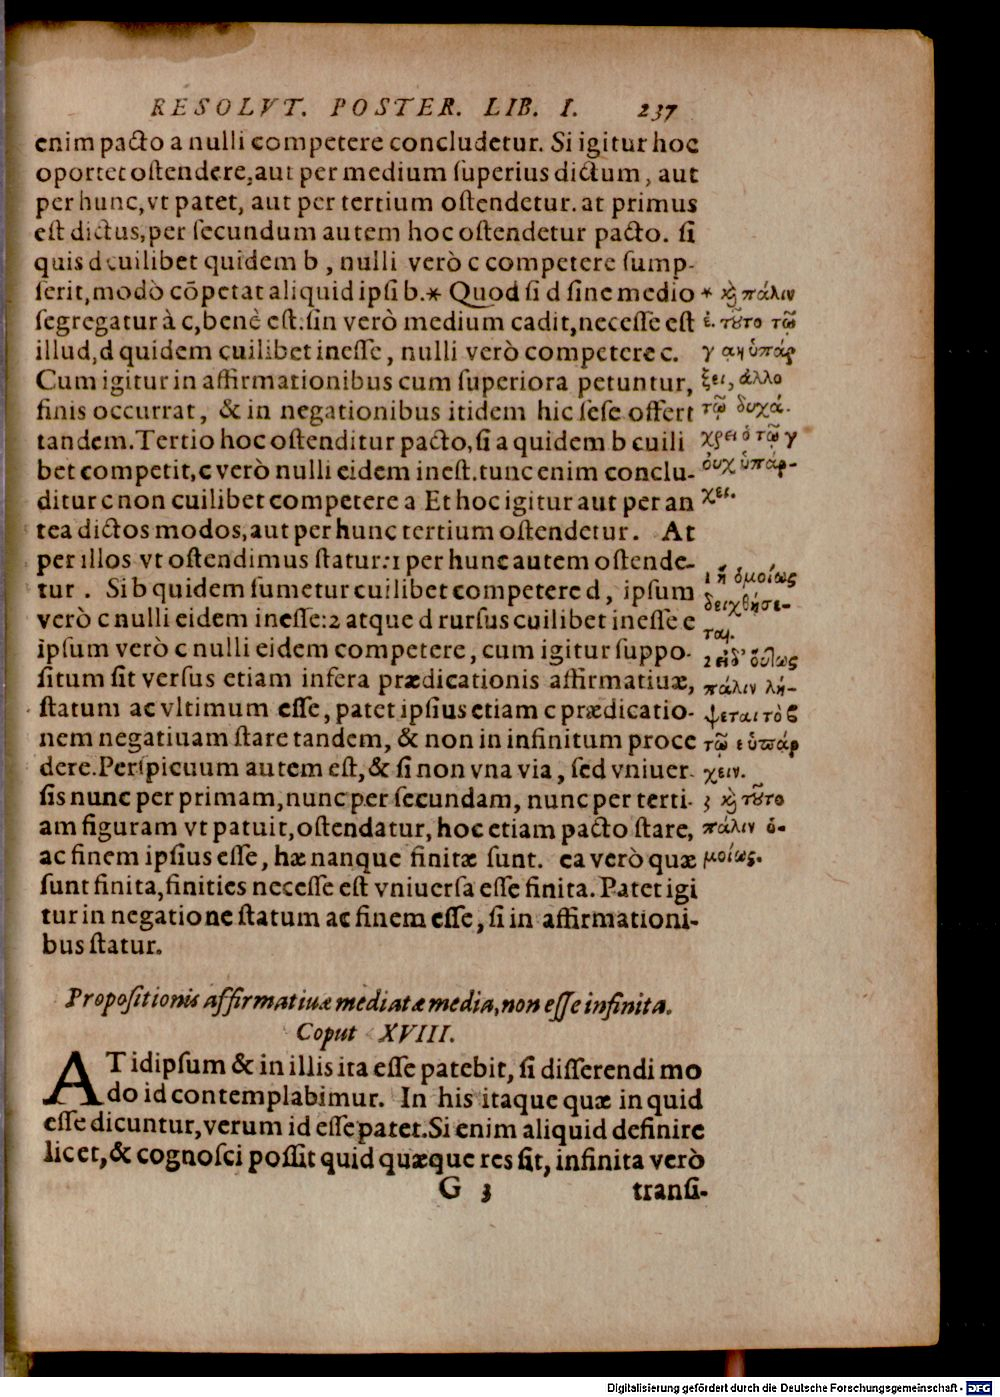 RESOLVT. POSTER. LIB. I. 237
enim pacto a nulli competere concludetur. Si igitur hoc
oportet oſtendere, aut per medium ſuperius dictum, aut
per hunc, vt patet, aut per tertium oſtendetur. at primus
eſt dictus, per ſecundum autem hoc oſtendetur pacto. ſi
quis d cuilibet quidem b, nulli verò c competere ſump-
ſerit, modò cōpetat aliquid ipſi b.* Quod ſi d ſine medio
ſegregatur à c, benè eſt. ſin verò medium cadit, neceſſe eſt
illud, d quidem cuilibet ineſſe, nulli verò competere c.
Cum igitur in affirmationibus cum ſuperiora petuntur,
finis occurrat, & in negationibus itidem hic ſeſe offert
tandem. Tertio hoc oſtenditur pacto, ſi a quidem b cuili
bet competit, c verò nulli eidem ineſt. tunc enim conclu-
ditur c non cuilibet competere a Et hoc igitur aut per an
tea dictos modos, aut per hunc tertium oſtendetur. At
per illos vt oſtendimus ſtatur: 1 per hunc autem oſtende-
tur. Si b quidem ſumetur cuilibet competere d, ipſum
verò c nulli eidem ineſſe: 2 atque d rurſus cuilibet ineſſe e
ipſum verò c nulli eidem competere, cum igitur ſuppo-
ſitum ſit verſus etiam infera prædicationis affirmatiuæ,
ſtatum ac vltimum eſſe, patet ipſius etiam c prædicatio-
nem negatiuam ſtare tandem, & non in infinitum proce
dere. Perſpicuum autem eſt, & ſi non vna via, ſed vniuer-
ſis nunc per primam, nunc per ſecundam, nunc per terti-
am figuram vt patuit, oſtendatur, hoc etiam pacto ſtare,
ac finem ipſius eſſe, hæ nanque finitæ ſunt. ea verò quæ
ſunt finita, finities neceſſe eſt vniuerſa eſſe finita. Patet igi
tur in negatione ſtatum ac finem eſſe, ſi in affirmationi-
bus ſtatur.
* ϗ πάλιν
ἐ. τȣ̃το τῷ
γ ἀν ὑπάρ
ξει, ἀλλο
τῷ δυχά.
χρει ὁ τῷ γ
ȣ̓χ ὑπάρ-
χει.
1 ἢ ὁμοίως
δειχθήσε-
ται.
2 εἰ δ' ὅλως
πάλιν λή-
ψεται τὸ ϛ
τῷ ε ὑπάρ
χειν.
3 ϗ τȣ̃το
πάλιν ὁ-
μοίως.
Propoſitionis affirmatiuæ mediatæ media, non eſſe infinita.
Coput XVIII.
AT idipſum & in illis ita eſſe patebit, ſi diſſerendi mo
do id contemplabimur. In his itaque quæ in quid
eſſe dicuntur, verum id eſſe patet. Si enim aliquid definire
licet, & cognoſci poſſit quid quæque res ſit, infinita verò
G 3 tranſi-
Digitalisierung gefördert durch die Deutsche Forschungsgemeinschaft - DFG